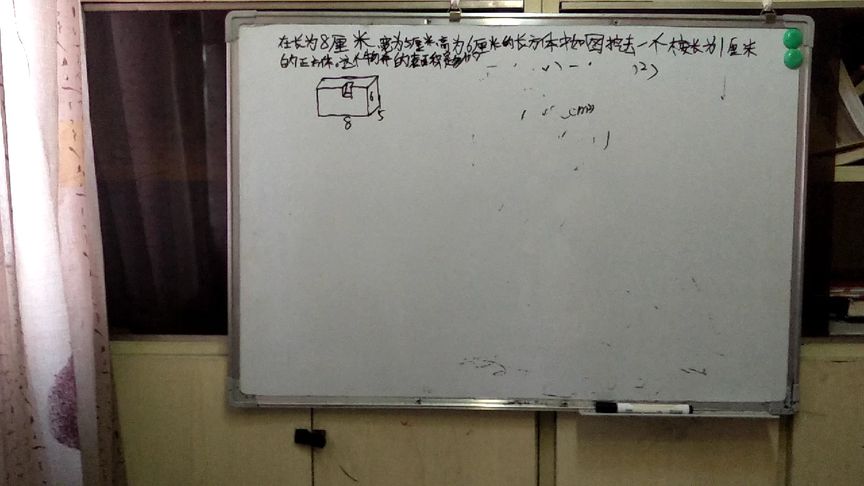 在长为8厘米,宽为5厘米,高为6厘米的长方体中如图挖去一个棱长为1厘米
的正方体。这个物体的表面积是
6
5
8
(2)
cm